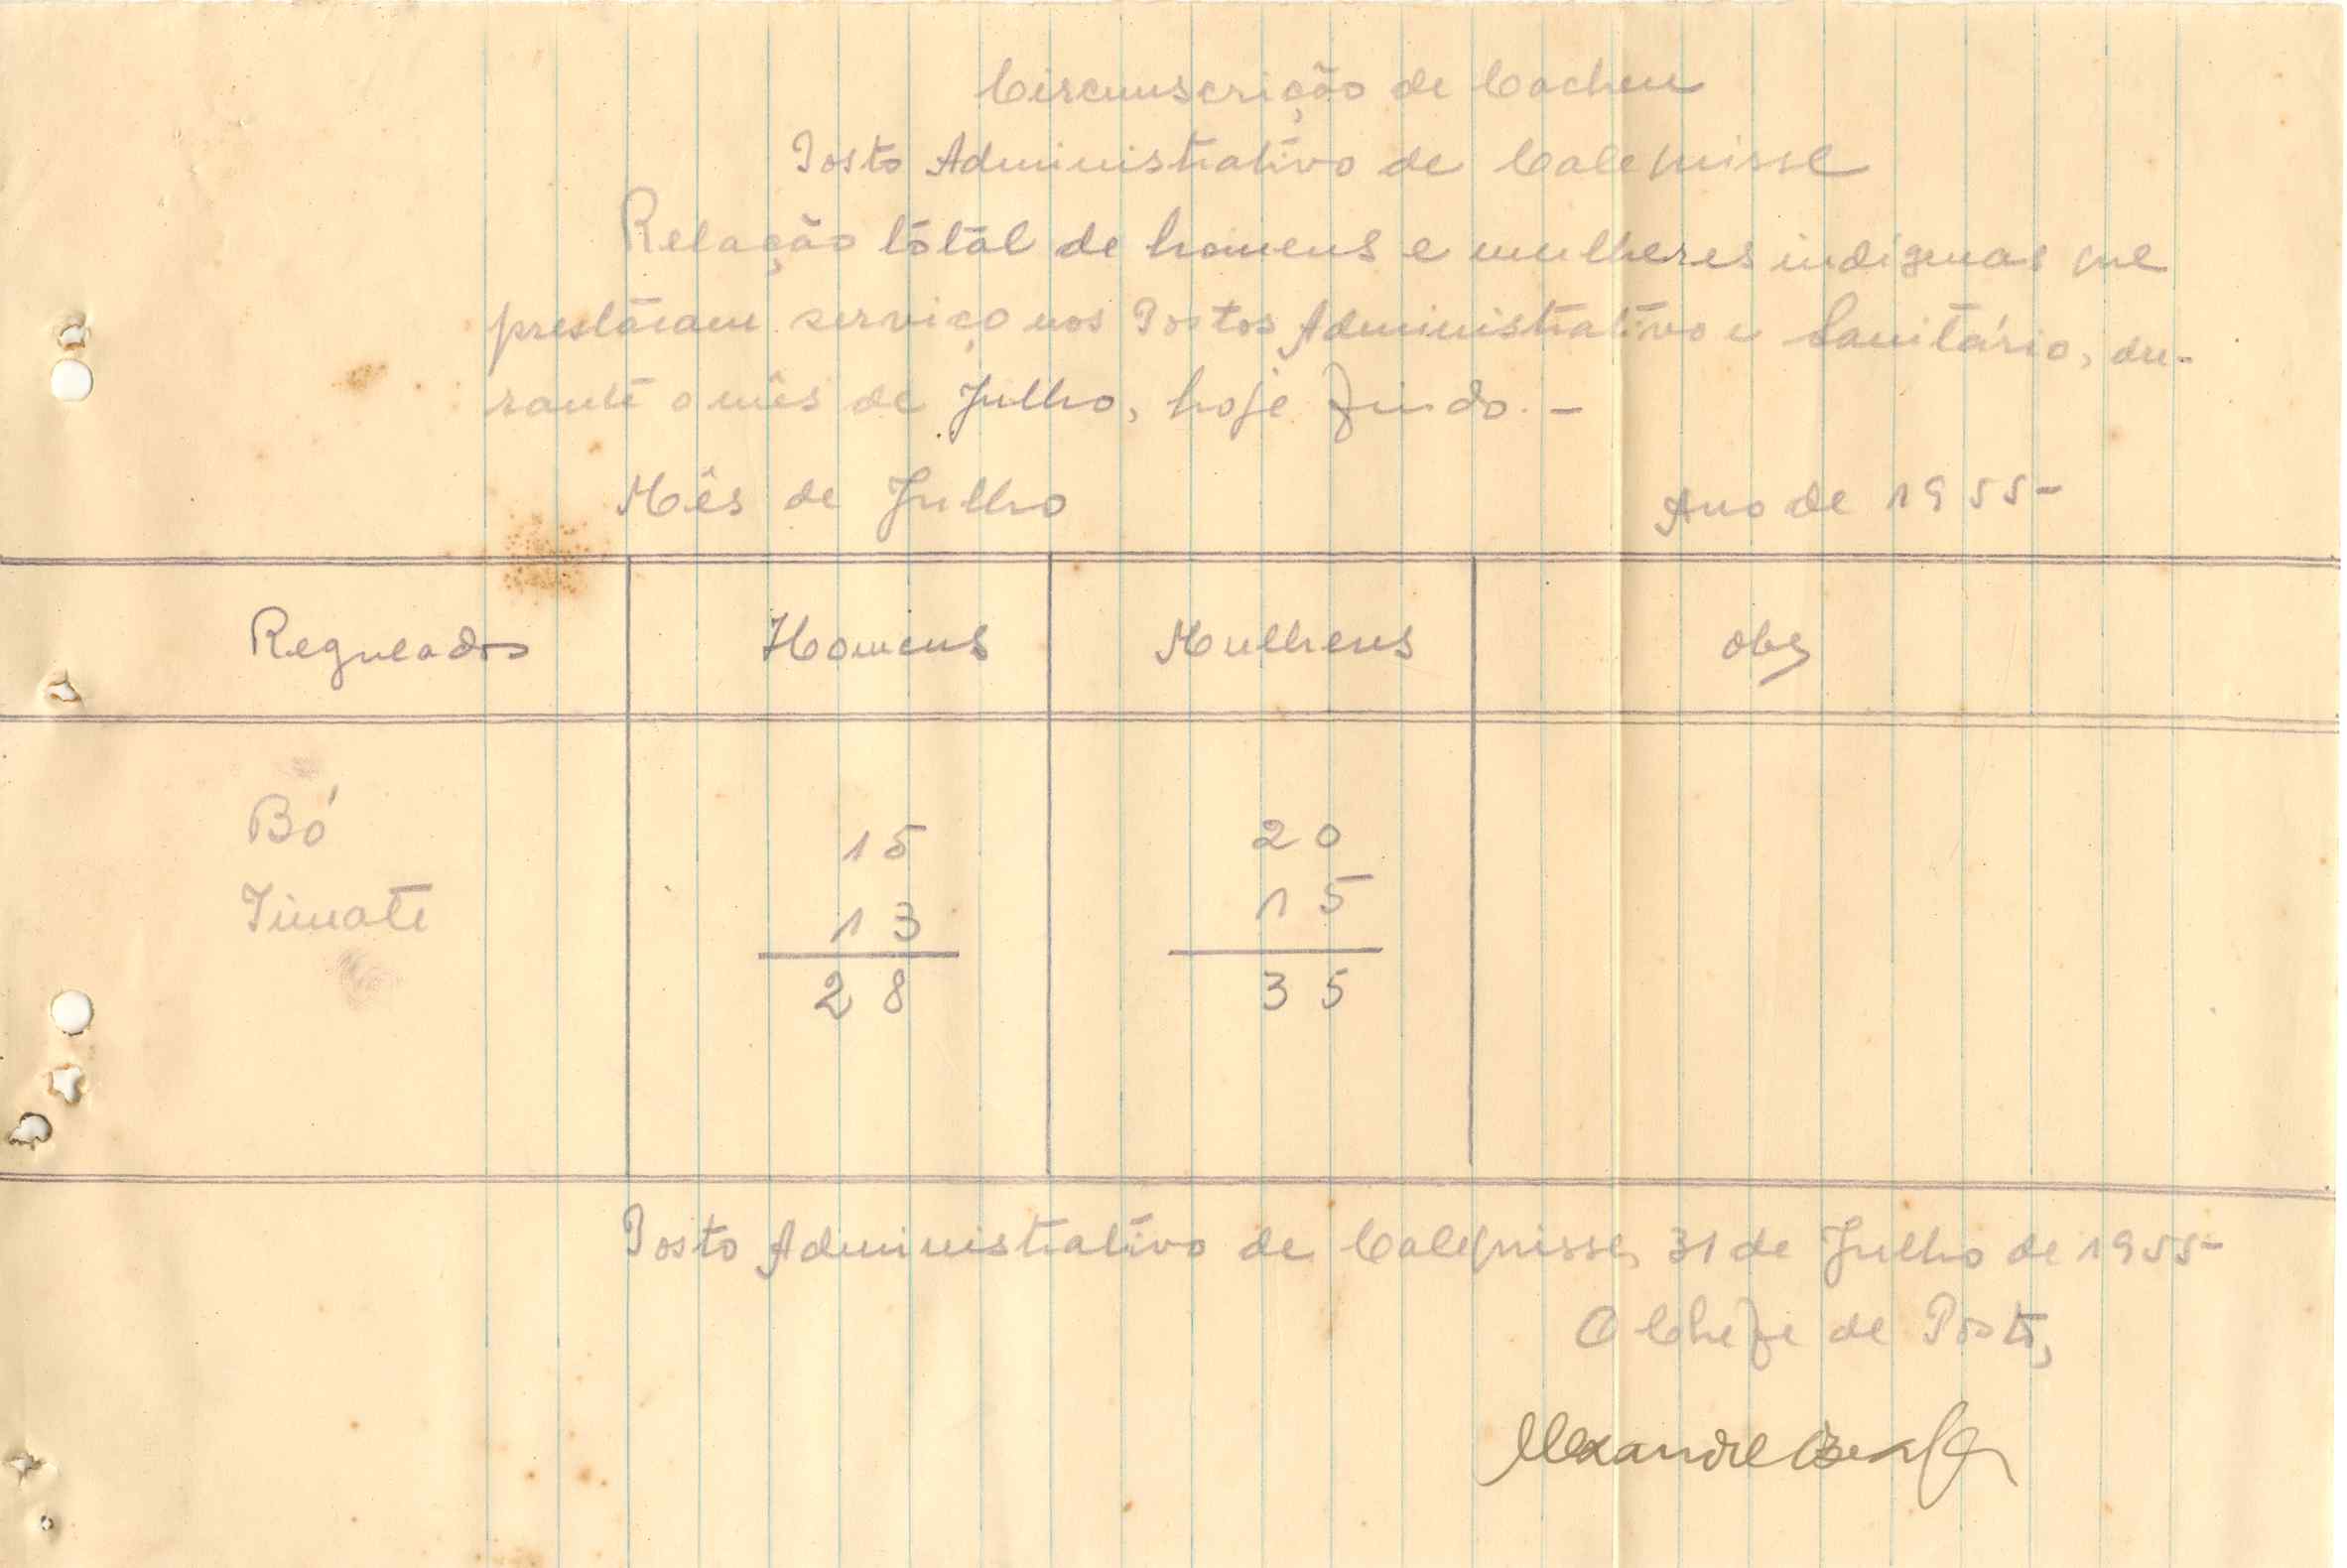 Circunscrição de Cacheu
Posto Administrativo de Calequisse
Relação total de homens e mulheres indigenas que
prestaram serviço nos Postos Administrativo e Sanitário, du-
rante o mês de Julho, hoje findo. -
Mês de Julho Ano de 1955-
Regulados Homens Mulheres obs
Bó 15 20
Timate 13 15
28 35
Posto Administrativo de Calequisse, 31 de Julho de 1955-
O Chefe de Posto,
Alexandre